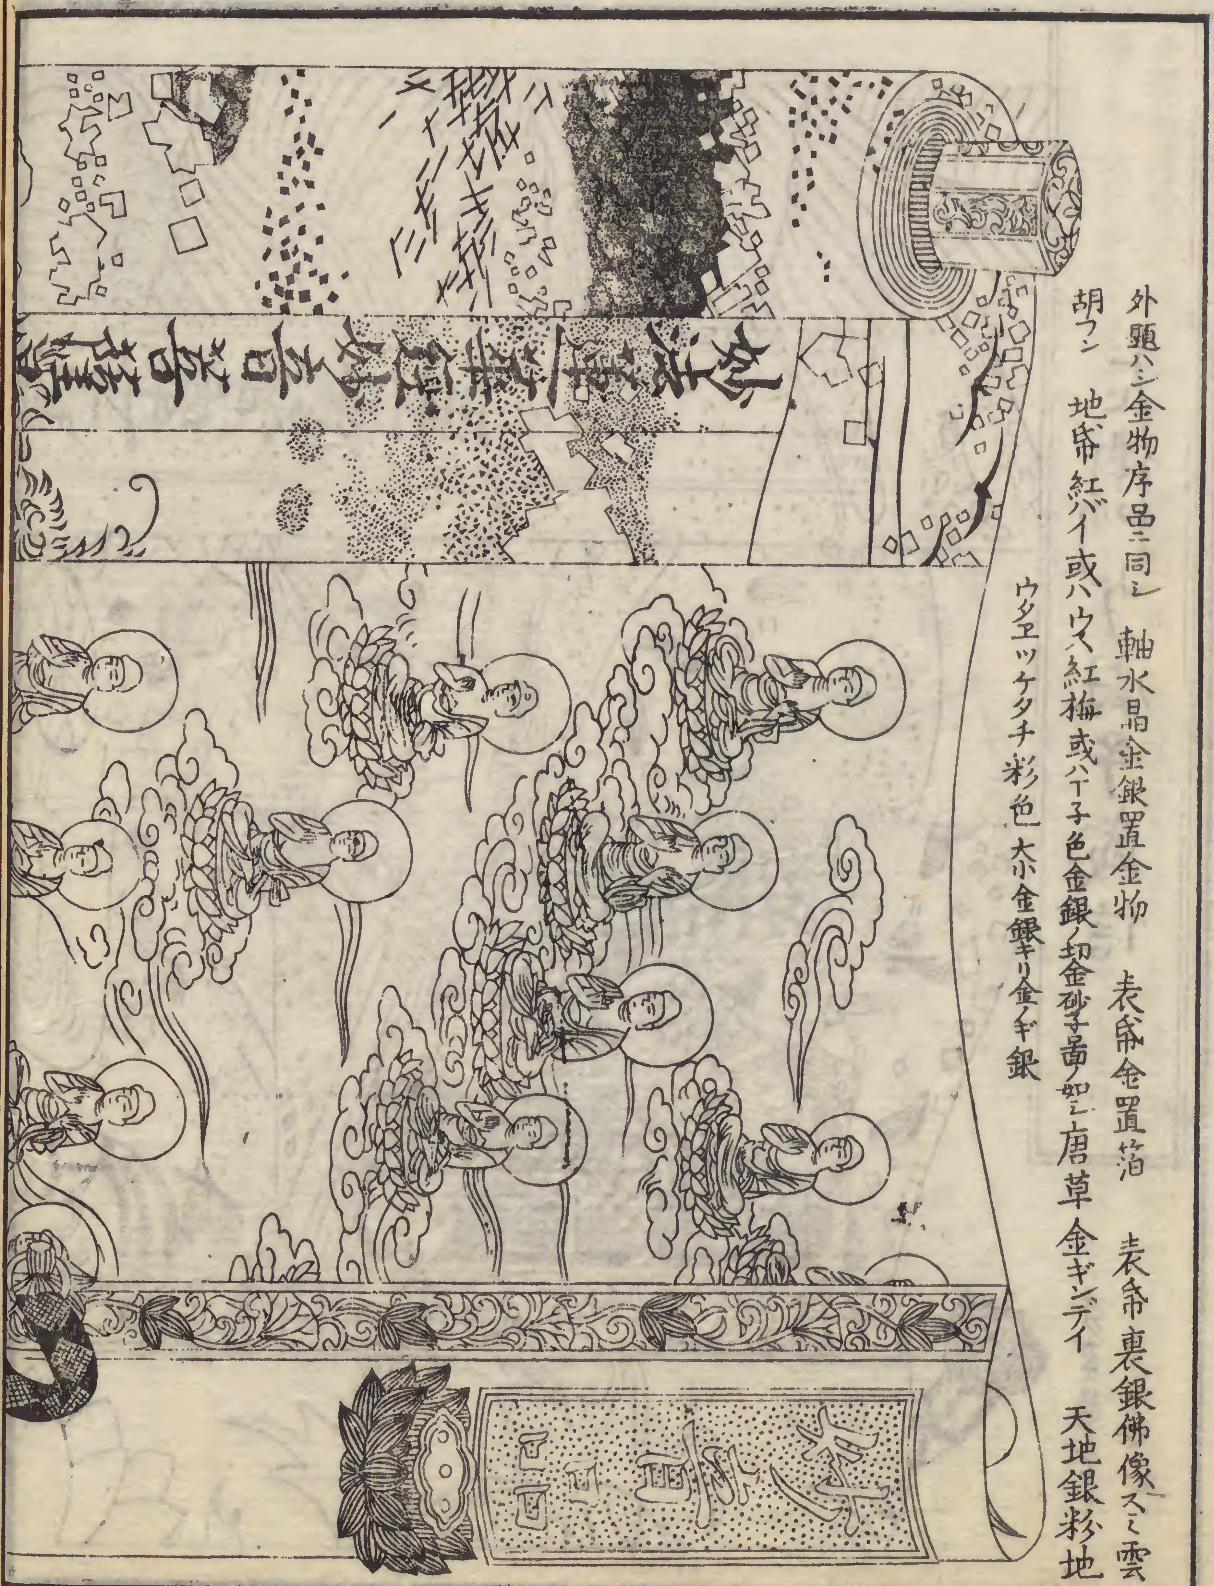 外題ハシ金物序品ニ同シ 軸水晶金銀置金物 表帋金置箔 表帋裏銀佛像スミ雲
胡フン 地帋紅バイ或ハウス紅梅或ハ丁子色金銀ノ切金砂子啚ノ如シ唐草金ギンデイ 天地銀粉地
ウタヱツケタチ彩色大小金銀キリ金ノギ銀
妙法蓮華經妙音菩薩